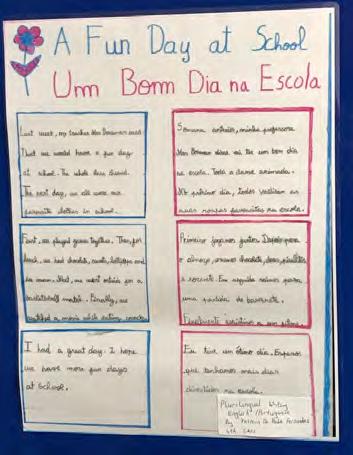 A Fun Day at School
Um Bom Dia na Escola
Last week, my teacher Mrs
that we would have a fun day
at school. The whole class cheered.
The next day, we all wore our
favourite clothes in school.
First, we played games together. Then, for
lunch, we had chocolate, sweets, lollipops and
ice cream. Next, we went outside for a
basketball match. Finally, we
watched a movie while eating snacks.
I had a great day. I hope
we have more fun days
at School.
Semana anterior, minha professora
Mrs disse vai ter um bom dia
na escola. Toda a classe animada.
No próximo dia, todos vestiram as
suas roupas favoritas na escola.
Primeiro jogamos juntos. Depois para
o almoço, comemos chocolate, doces, pirulitos
e sorvete. Em seguida saímos para
uma partida de basquete.
Finalmente assistimos a um filme
Eu tive um ótimo dia. Espero
que tenhamos mais dias
divertidos na escola.
Plurilingual Writing
English / Portuguese
By